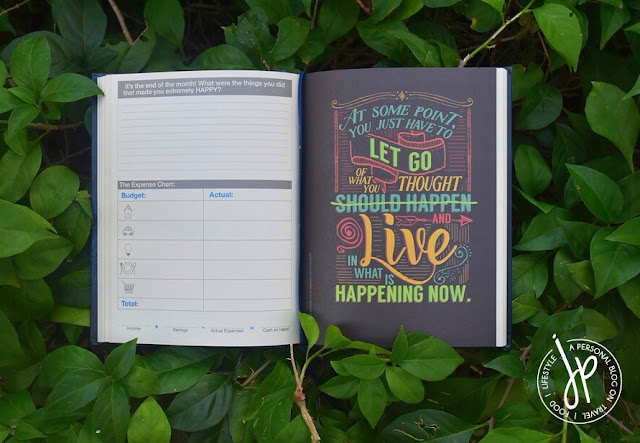 It's the end of the month! What were the things you did
that made you extremely HAPPY?
The Expense Chart:
Budget: Actual:
Total:
Income + Savings - Actual Expenses = Cash on Hand
AT SOME POINT,
YOU JUST HAVE TO
LET GO
OF WHAT YOU THOUGHT
SHOULD HAPPEN
AND
Live
IN WHAT IS
HAPPENING NOW.
jp
A PERSONAL BLOG ON TRAVEL | FOOD | LIFESTYLE